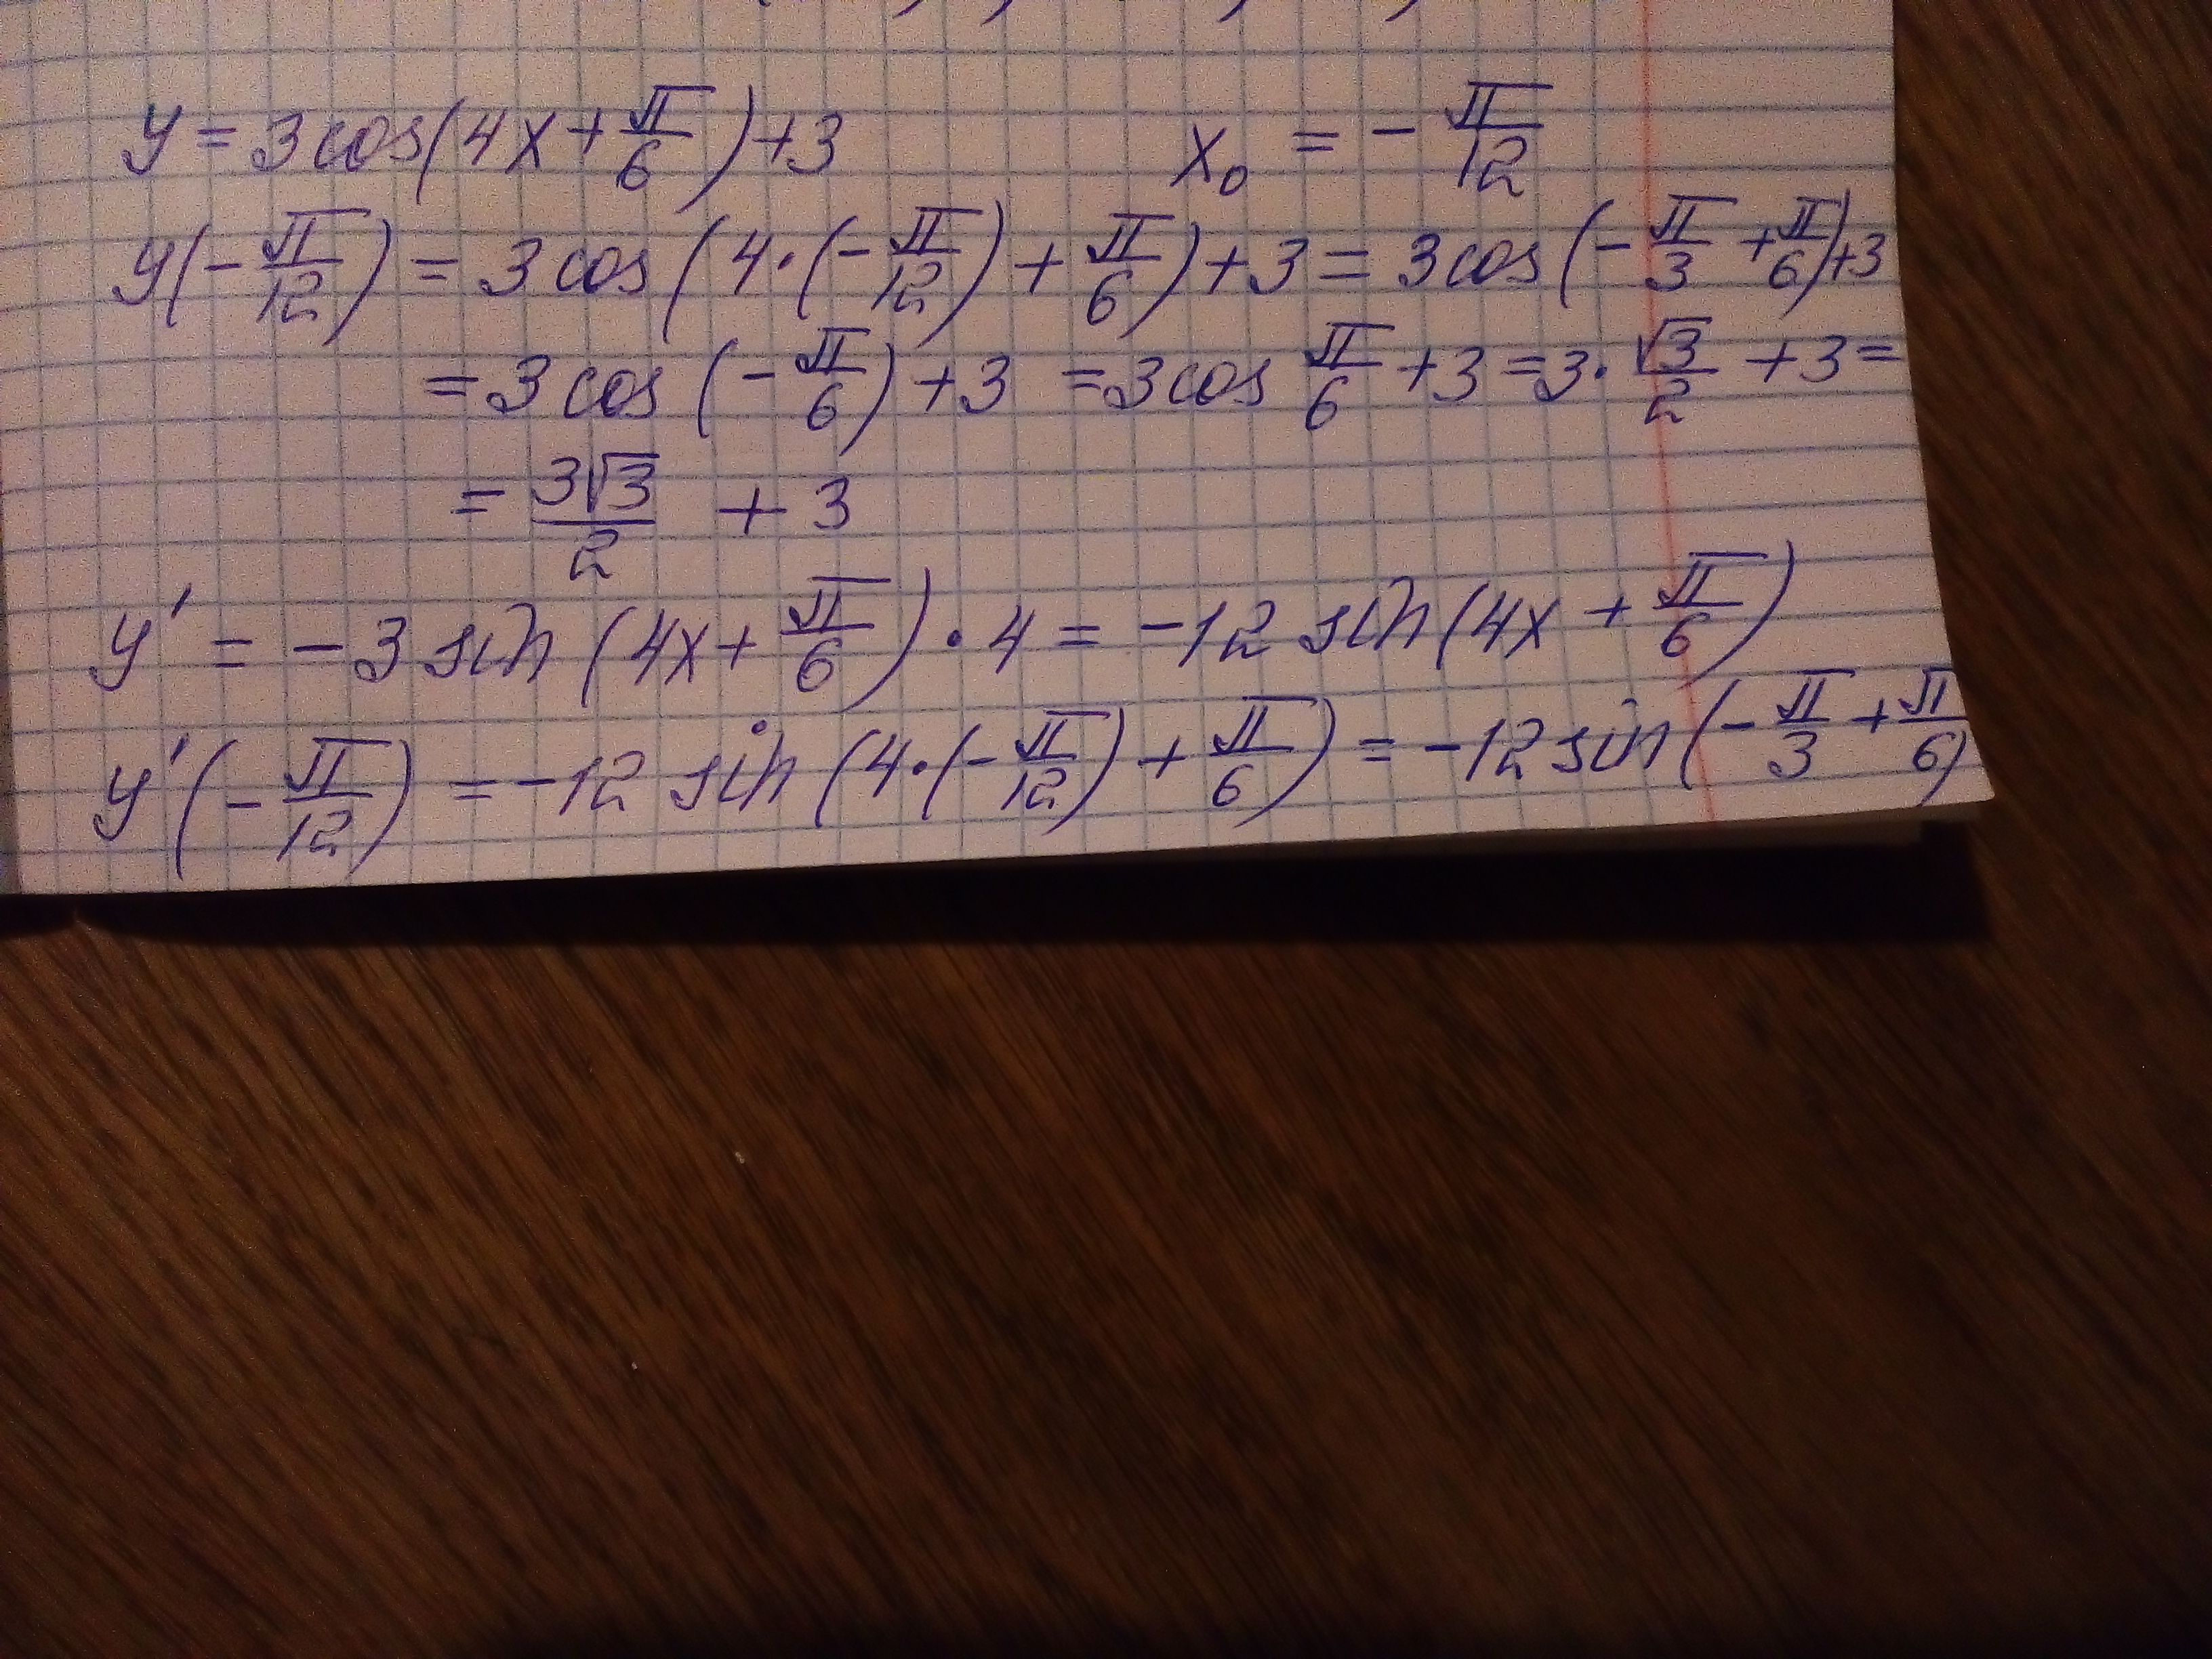 y = 3cos(4x + π/6) + 3    x₀ = - π/12
y(- π/12) = 3cos(4·(- π/12) + π/6) + 3 = 3cos(- π/3 + π/6) + 3
= 3cos(- π/6) + 3 = 3cos π/6 + 3 = 3· √3/2 + 3 =
= 3√3/2 + 3
y' = -3 sin(4x + π/6)·4 = -12 sin(4x + π/6)
y'(- π/12) = -12 sin(4·(- π/12) + π/6) = -12 sin(- π/3 + π/6)